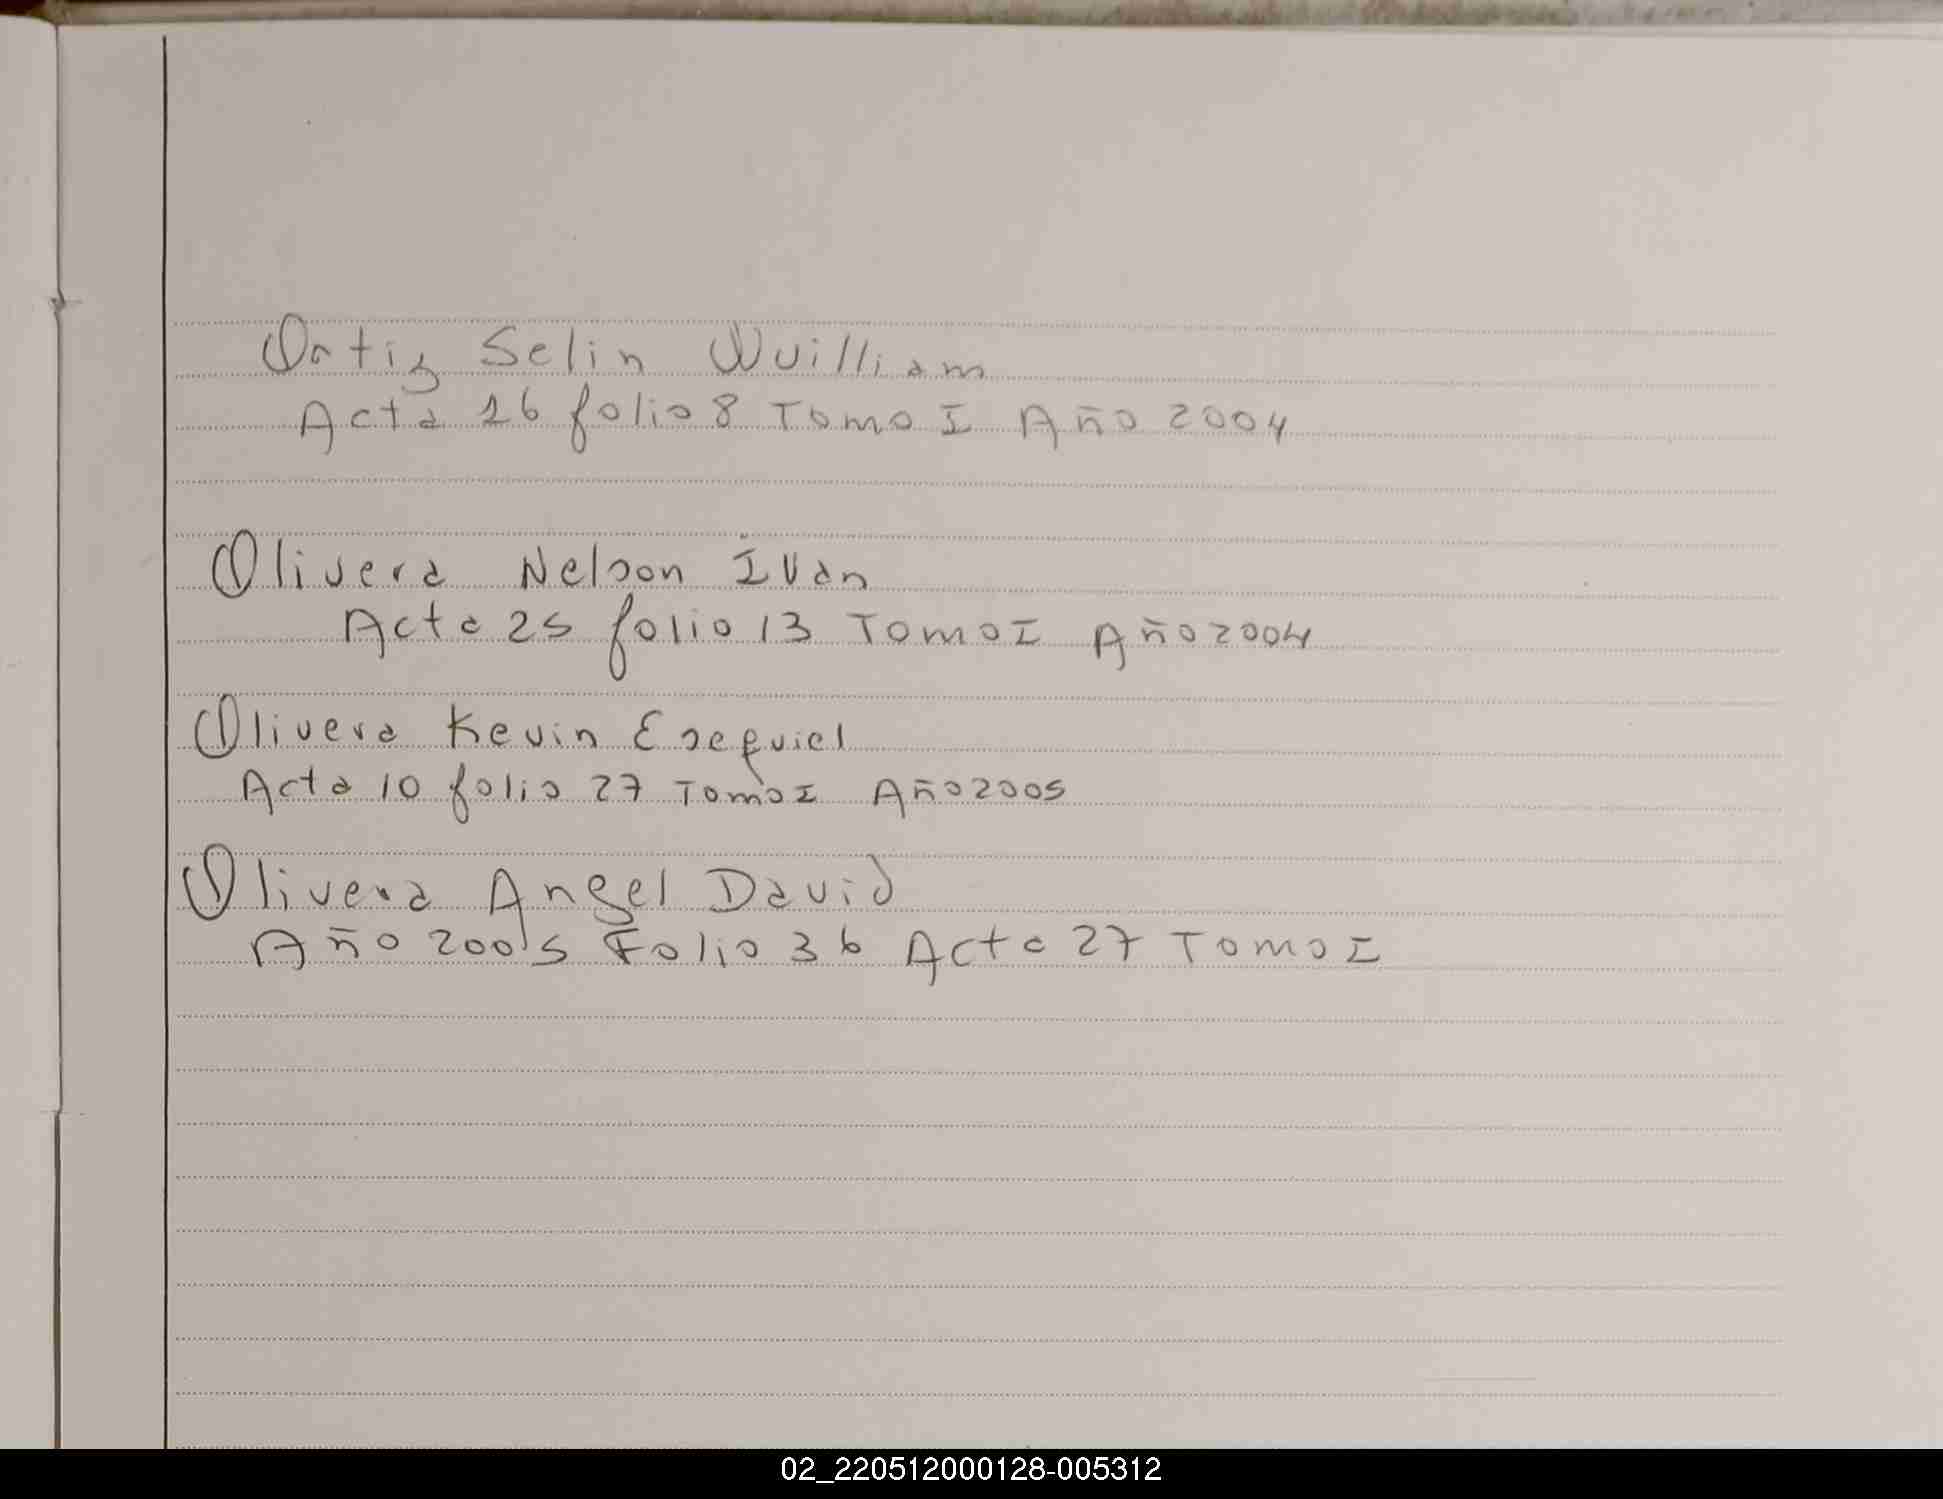 Ortiz Selin Wuilliam
Acta 16 folio 8 Tomo I Año 2004
Olivera Nelson Ivan
Acta 25 folio 13 Tomo I Año 2004
Olivera Kevin Esequiel
Acta 10 folio 27 Tomo I Año 2005
Olivera Angel David
Año 2005 Folio 36 Acta 27 Tomo I
02_220512000128-005312